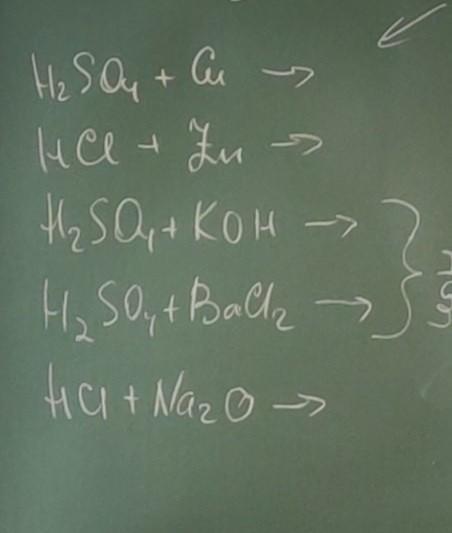 H₂SO₄ + Cu →
HCl + Zn →
H₂SO₄ + KOH →
H₂SO₄ + BaCl₂ →
HCl + Na₂O →